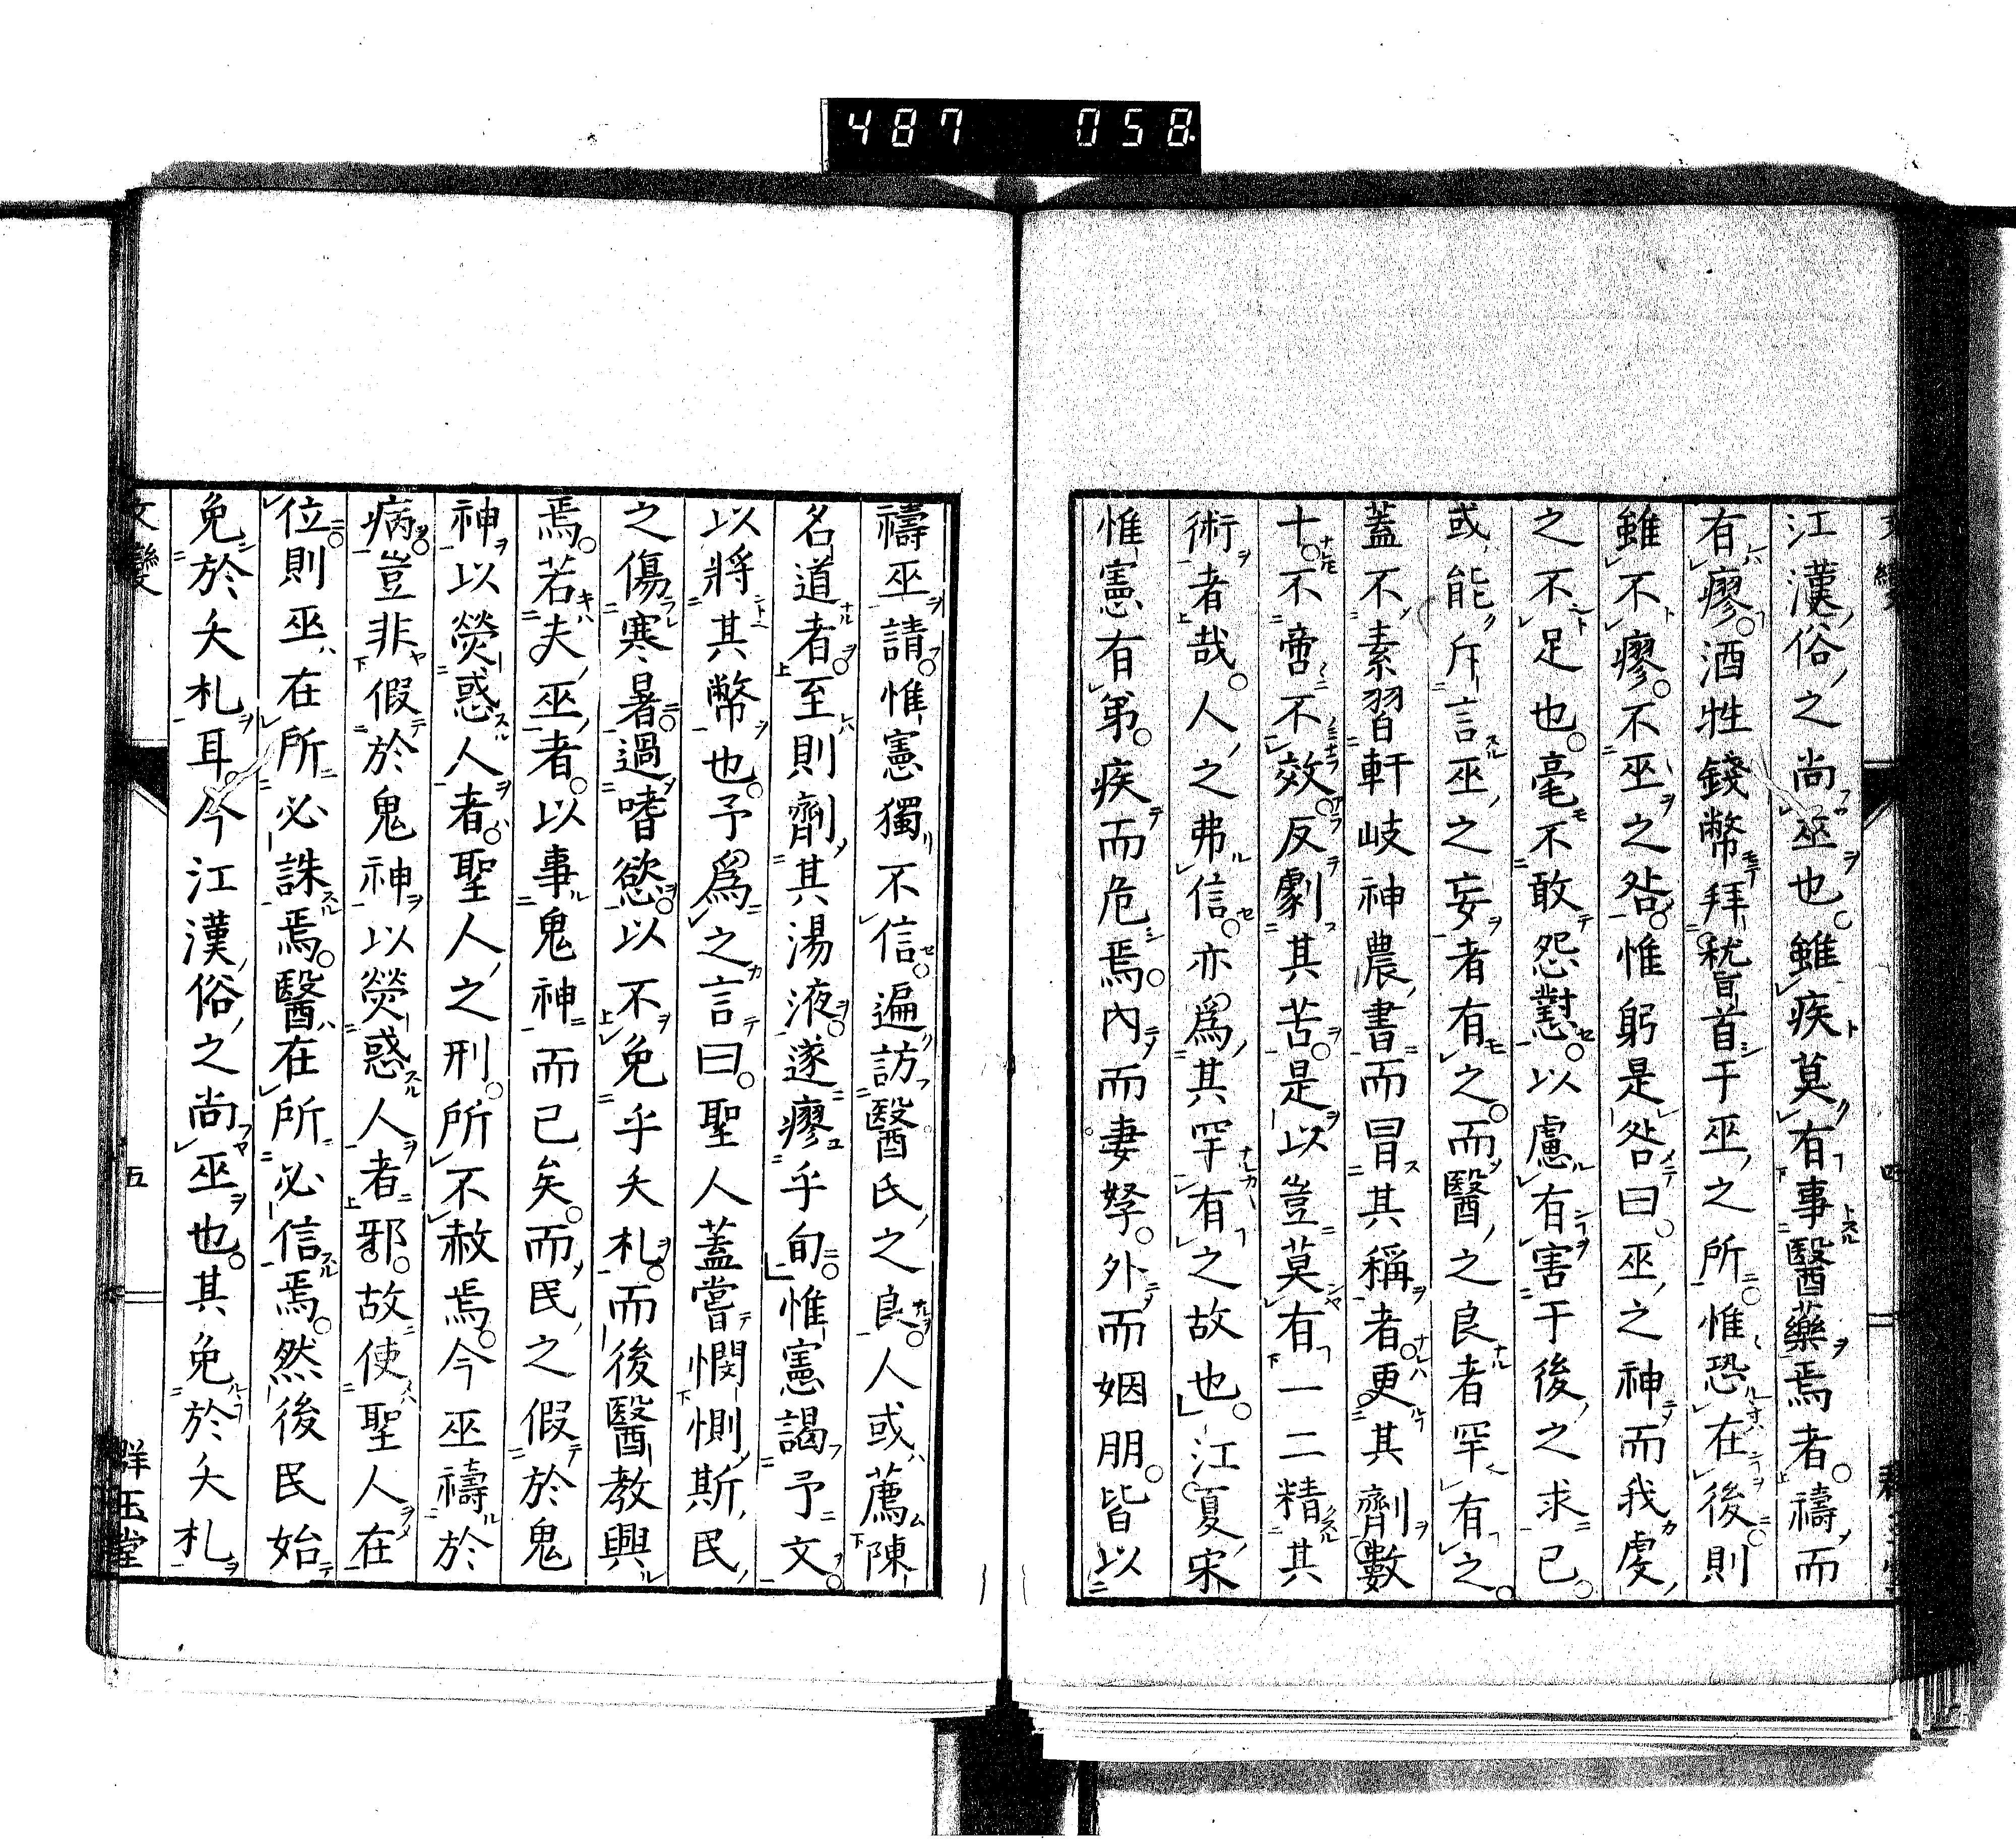 487 058
江漢俗之尚巫也雖疾莫有事醫藥焉者禱而
有瘳酒牲錢幣拜稽首于巫之所惟恐在後則
雖不瘳不巫之咎惟躬是咎曰巫之神而我虔
之不足也毫不敢怨懟以慮有害于後之求已
或能斥言巫之妄者有之而醫之良者罕有之
蓋不素習軒岐神農書而冒其稱者更其劑數
十不啻不效反劇其苦是以豈莫有一二精其
術者哉人之弗信亦爲其罕有之故也江夏宋
惟憲有弟疾而危焉內而妻孥外而姻朋皆以
禱巫請惟憲獨不信遍訪醫氏之良人或薦陳
名道者至則劑其湯液遂瘳乎旬惟憲謁予文
以將其幣也予爲之言曰聖人蓋嘗憫惻斯民
之傷寒暑過嗜慾以不免乎夭札而後醫教興
焉若夫巫者以事鬼神而已矣而民之假於鬼
神以熒惑人者聖人之刑所不赦焉今巫禱於
病豈非假於鬼神以熒惑人者邪故使聖人在
位則巫在所必誅焉醫在所必信焉然後民始
免於夭札耳今江漢俗之尚巫也其免於夭札
文變
五
群玉堂